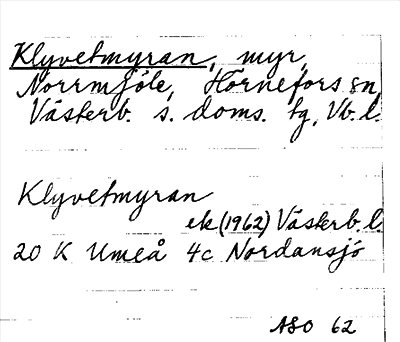 Klyvetmyran, myr,
Norrmjöle, Hörnefors sn,
Västerb. s. doms. tg, Vb. l.
Klyvetmyran
ek (1962) Västerb. l.
20 K Umeå 4c Nordansjö
ASO 62